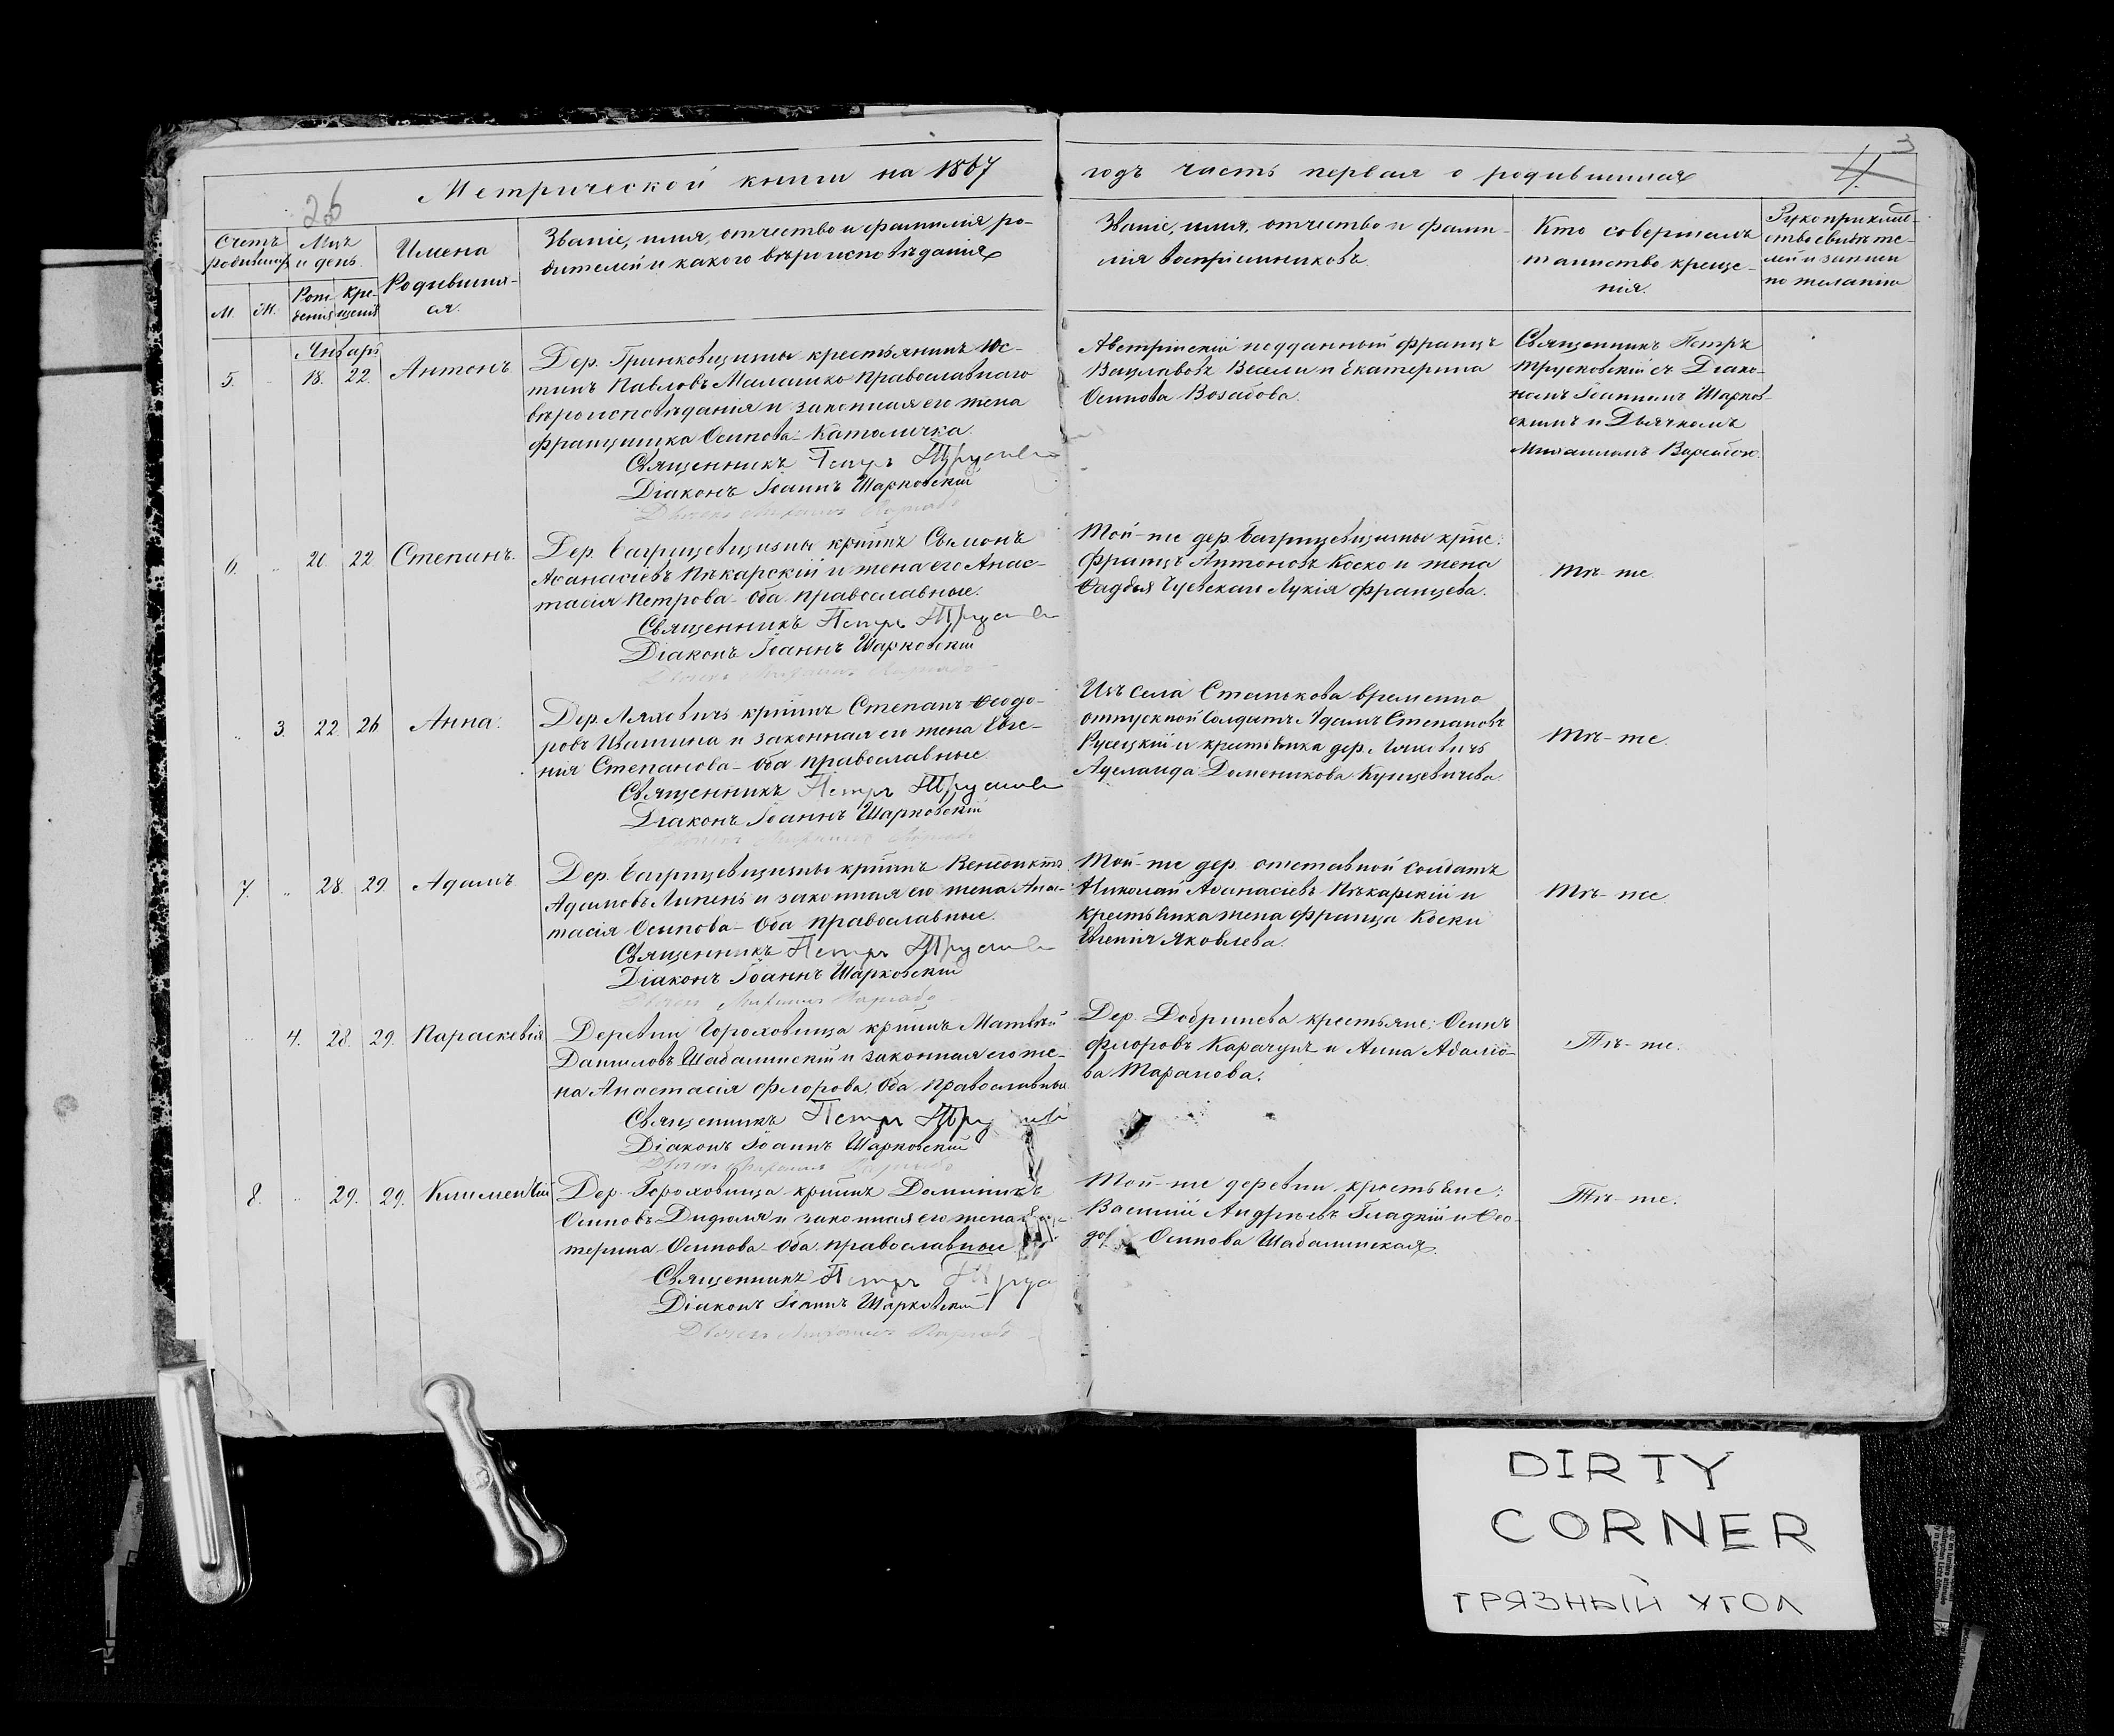 3
4.
26
Метрической книги на 1867 годъ часть первая о родившихся
Счетъ родившихся
Мцъ и день
Имена Родившихся.
Званіе, имя, отчество и фамилія родителей и какого вѣроисповѣданія
Званіе, имя, отчество и фамилія воспріемниковъ.
Кто совершалъ таинство крещенія.
Рукоприкладство свидѣтелей и записи по желанію
М.
Ж.
Рожденія
Крещенія
Январь
5.
18.
22.
Антонъ
Дер. Гринковщизны крестьянинъ Юс-
тинъ Павловъ Малашко православнаго
вѣроисповѣданія и законная его жена
Францишка Осипова Католичка.
Священникъ Петръ
Діаконъ Іоаннъ Шарковскій
Австрійскій подданный Францъ
Вацлавовъ Весели и Екатерина
Осипова
Священникъ Петръ
съ Діако-
номъ Іоанномъ Шарков-
скимъ и Дьячкомъ
Михаиломъ
6.
20.
22
Степанъ.
Дер. крнинъ Сымонъ
Аѳанасіевъ Пѣкарскій и жена его Анас-
тасія Петрова - Оба православные.
Священникъ Петръ
Діаконъ Іоаннъ Шарковскій
Той-же дер. крне:
Францъ Антоновъ Коско и жена
Лукія Францева.
Тѣ-же.
3.
22.
26
Анна.
Дер. Ляховичъ крнинъ Степанъ Ѳеодо-
ровъ и законная его жена Евге-
нія Степанова - Оба православные
Священникъ Петръ
Діаконъ Іоаннъ Шарковскій
Изъ села Станькова временно
отпускной Солдатъ Адамъ Степановъ
Русецкій и крестьянка дер. Ляховичъ
Аделаида Доменикова Кунцевичева.
Тѣ-же.
7.
28.
29.
Адамъ
Дер. крнинъ Венедиктъ
Адамовъ Липень и законная его жена Анас-
тасія Осипова - Оба православные.
Священникъ Петръ
Діаконъ Іоаннъ Шарковскій
Той-же дер. отставной солдатъ
Николай Аѳанасіевъ Пѣкарскій и
крестьянка жена Франца Коски
Евгенія Яковлева.
Тѣ-же.
4.
28.
29.
Параскевія
Деревни Гороховища крнинъ Матвѣй
Даниловъ Шабалинскій и законная его же-
на Анастасія Флорова. Оба Православные
Священникъ Петръ
Діаконъ Іоаннъ Шарковскій
Дер. Добринева крестьяне: Осипъ
Флоровъ Карачунъ и Анна Адамо-
ва Таранова.
Тѣ-же.
8.
29.
29.
Климентій
Дер. Гороховища крнинъ Доминикъ
Осиповъ Дидюля и законная его жена
терина Осипова - Оба православные
Священникъ Петръ
Діаконъ Іоаннъ Шарковскій
Той-же деревни крестьяне:
Василій Андреевъ Гладкій и Ѳео-
дор Осипова Шабалинская
Тѣ-же.
DIRTY
CORNER
ГРЯЗНЫЙ УГОЛ